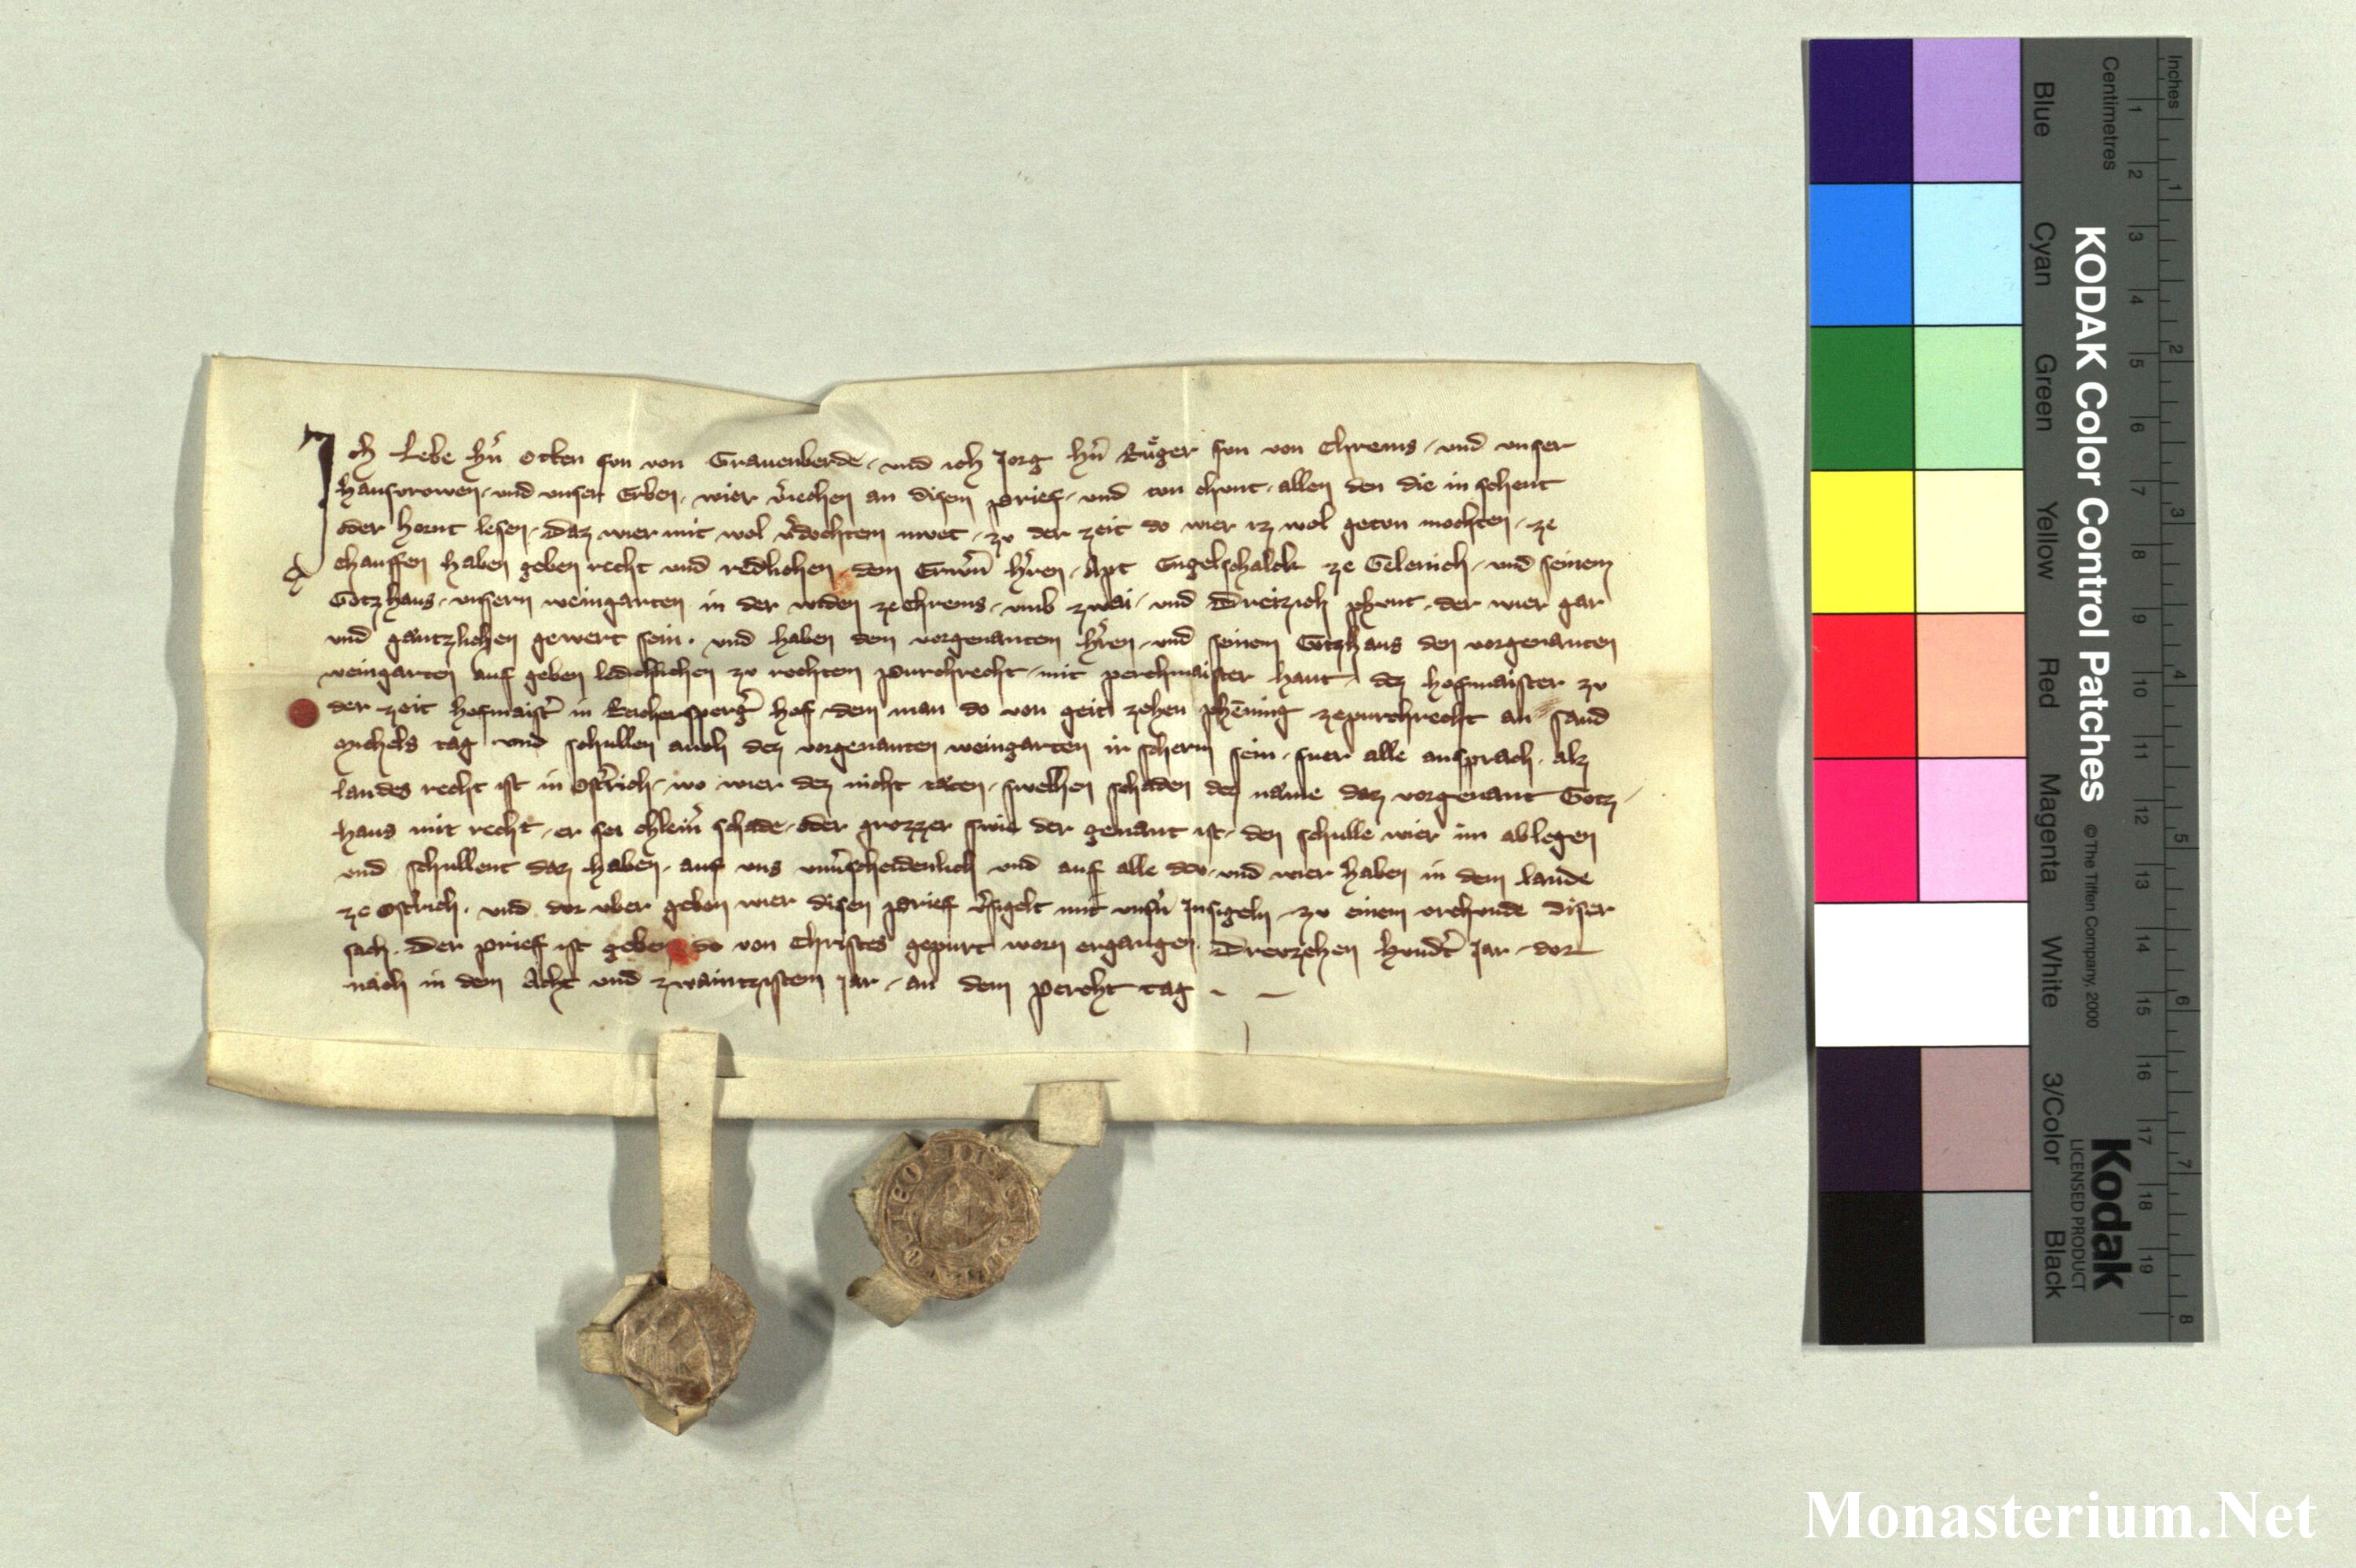 Ich Lebe hˀn Otten sun von Grauenberde, und ich Jorg hˀn Ruͤger sun von Chrems, und unser
hausvrowen, und unser Erben, wier vˀiechen an disem prief, und tun chunt, allen den die in sehent
oder hornt lesen, Daz wier mit wol vˀdochtem muet, zu der zeit do wier iz wol getun mochten, ze
chauffen haben geben recht und redlichen, dem Erwˀn hˀren, Apt Engelschalck ze , und seinem
Gotzhaus, unsern weingarten in der widen ze chrems, umb zwai, und Dreizich phunt, der wier gar
und gäntzlichen gewert sein. und haben dem vorgenanten hˀren, und seinem Gotzhaus den vorgenanten
weingarten auf geben ledichlichen zu rechtem purchrecht, mit perchmaister hant, dez hofmaister zu
der zeit hofmaistˀ in Reichersp̱ergˀ hof, dem man do von geit zehen phēning ze purchrecht an sand
michels tag und schullen auch dez vorgenanten weingarten ir scherm sein, fuer alle ansprach, alz
landes recht ist in Ostˀrich, wo wier dez nicht täten, swelhen schaden dez näme daz vorgenant Gotz,
haus mit recht, er sei chleinˀ schade, oder grozzer swie der genant ist, den schulle wier im ablegen
und schullent daz haben, auf uns unvˀscheidenlich und auf alle deu, und wier haben in dem lande
ze Ostrich. und dor uber geben wier disen prief vˀsigelt mit unsˀn Insigeln, zu einem urchunde diser
sach. Der prief ist geben do von Christes gepurt worn ergangen. Dreuzehen hundˀt Jar, dor
nach in dem Acht und zwaintzistem Jar, an dem percht tag
KODAK Color Control Patches
© The Tiffen Company, 2000
Kodak
LICENSED PRODUCT
Inches 1 2 3 4 5 6 7 8
Centimetres 1 2 3 4 5 6 7 8 9 10 11 12 13 14 15 16 17 18 19
Blue Cyan Green Yellow Red Magenta White 3/Color Black
Monasterium.Net